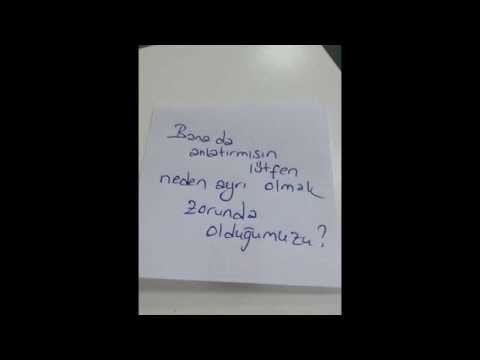 Bana da
anlatırmısın
lütfen
neden ayrı olmak
zorunda
olduğumuzu?